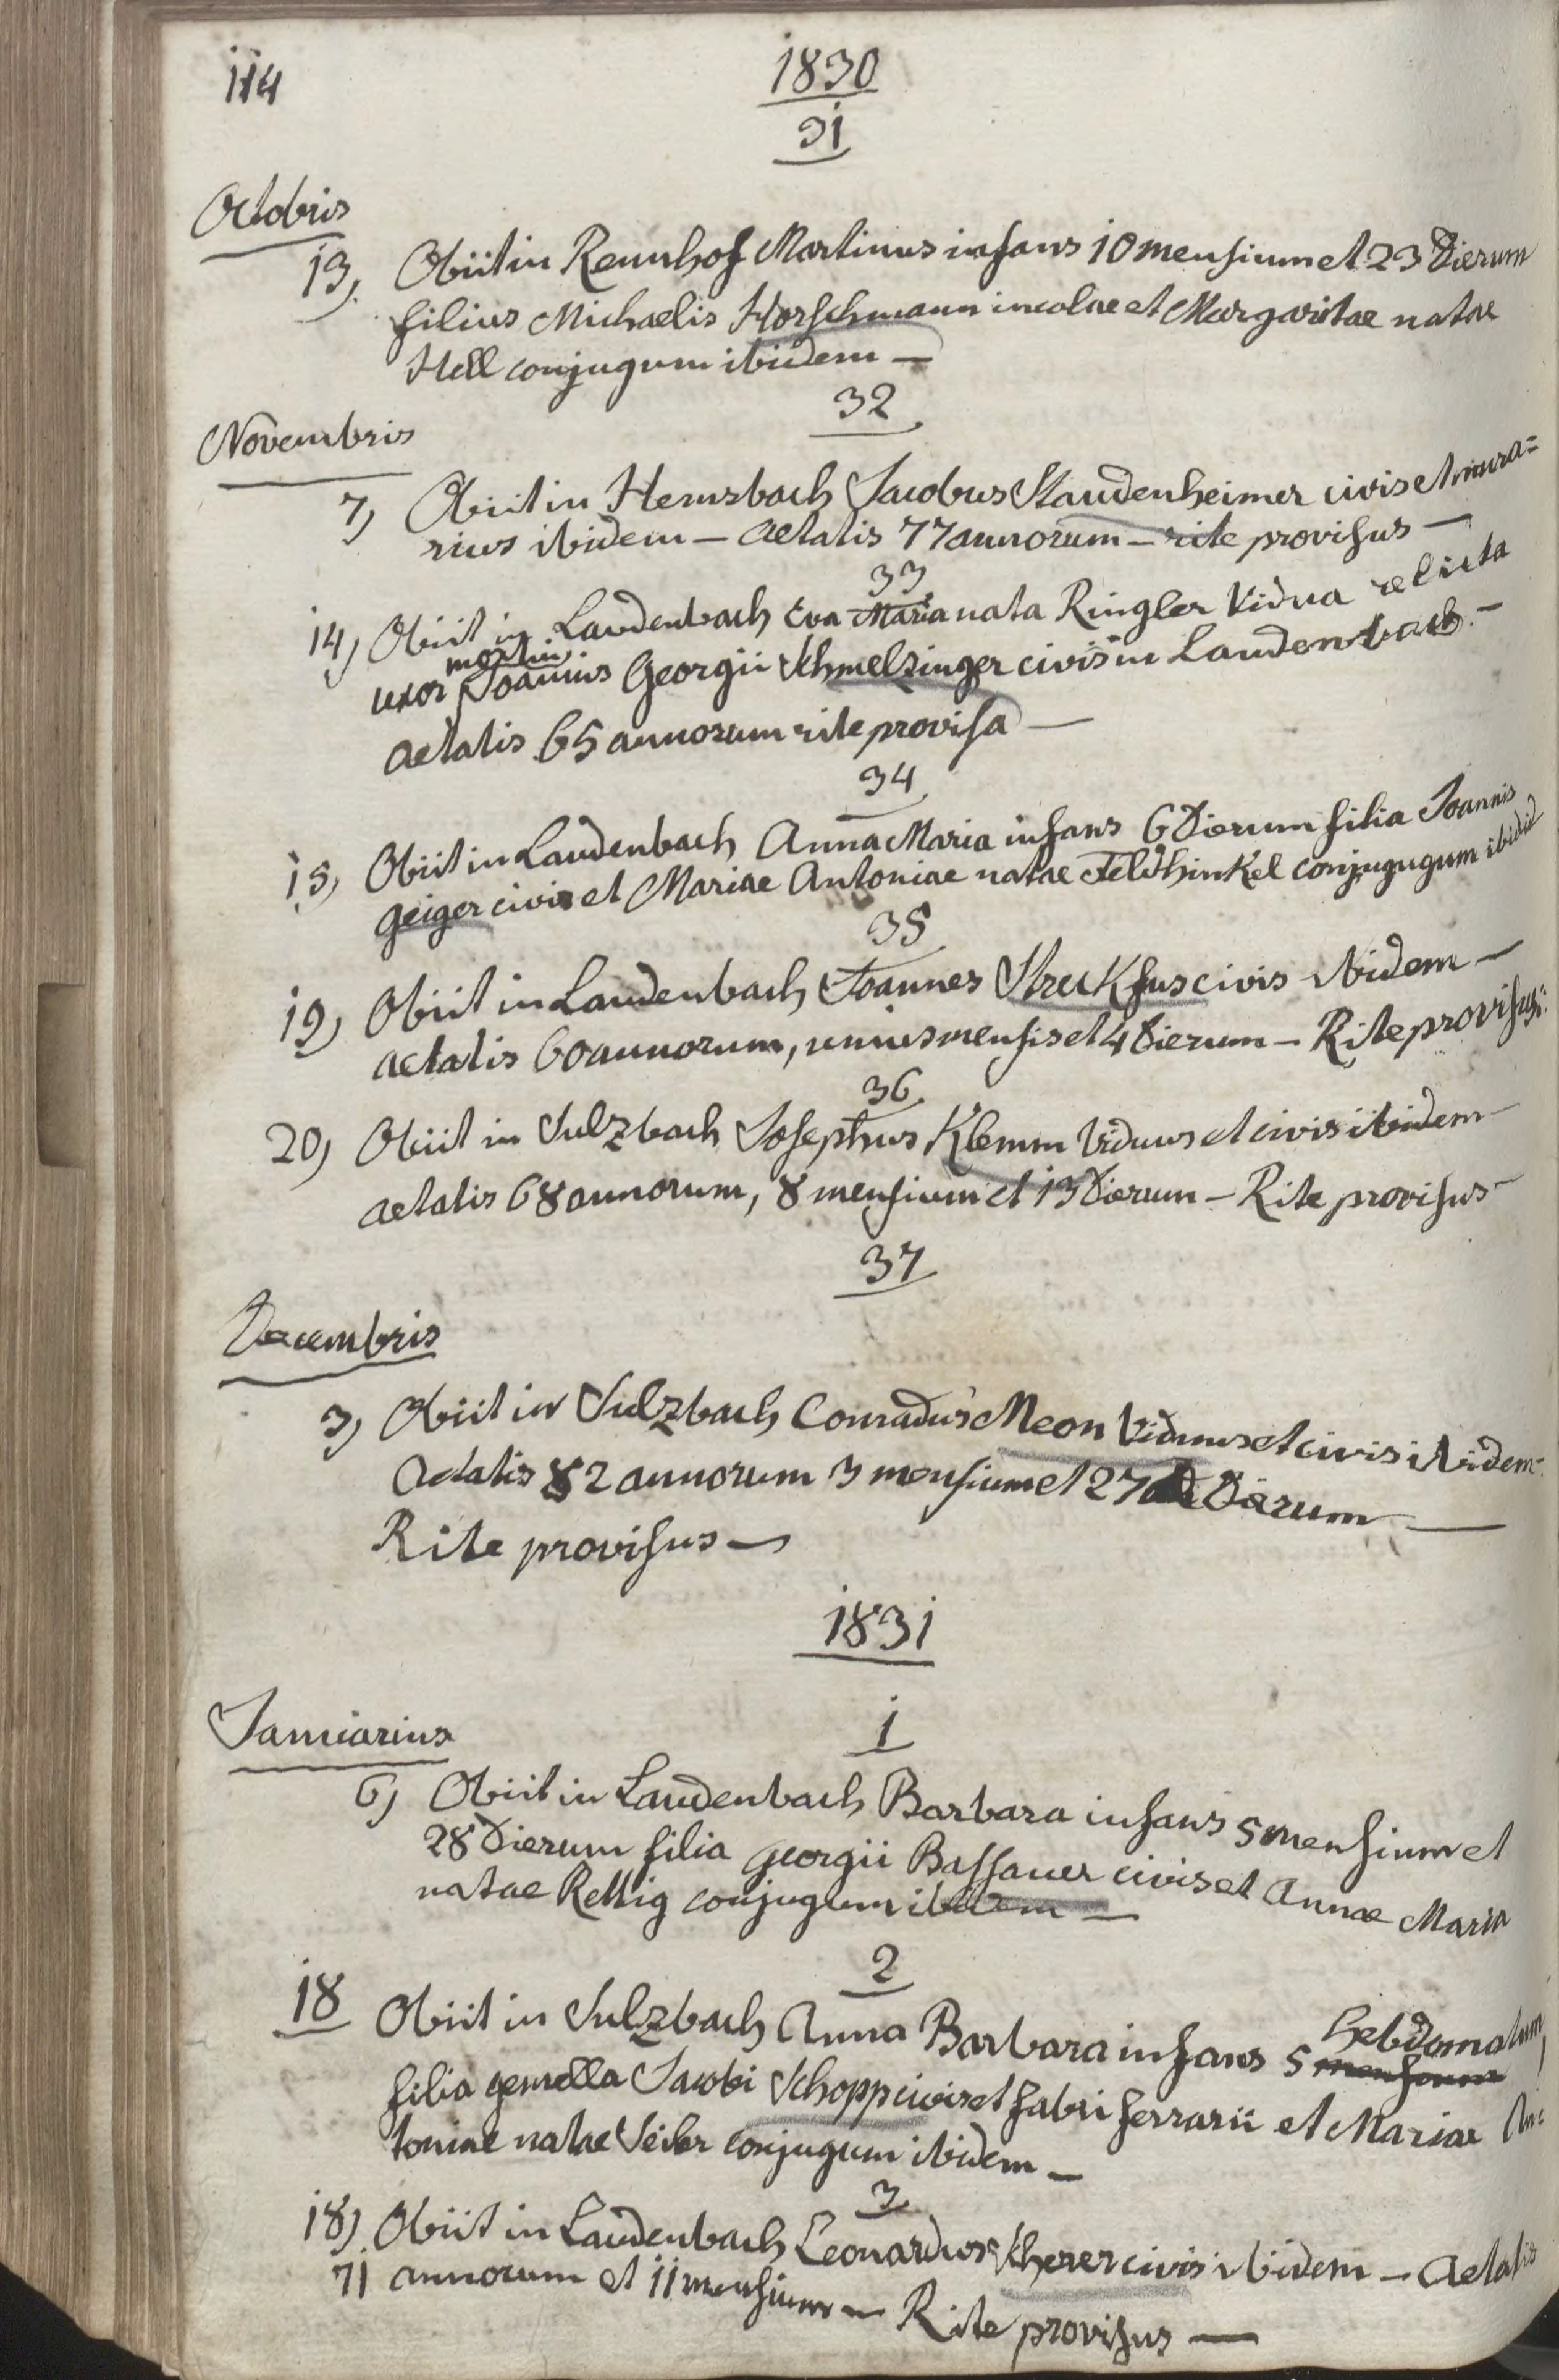 114
1830
31
Octobris
13, Obiit in Rennhof Martinus infans 10 mensium et 23 Dierum
filius Michaelis Horschmann incolae et Margaritae natae
Hell conjugum ibidem —
32
Novembris
7, Obiit in Hemsbach Jacobus Staudenheimer civis et mura=
rius ibidem — aetatis 77 annorum — rite provisus —
33
14, Obiit in Laudenbach Eva Maria nata Ringler Vidua relicta
mortui
uxor Joannis Georgii Schmelzinger civis in Laudenbach. —
aetatis 65 annorum rite provisa —
34
15, Obiit in Laudenbach Anna Maria infans 6 Dierum filia Joannis
Geiger civis et Mariae Antoniae natae Feldhinkel conjugugum ibidem
35
19, Obiit in Laudenbach Joannes Streckfus civis ibidem —
aetatis 60 annorum, unius mensis et 4 Dierum — Rite provisus.
36
20, Obiit in Sulzbach Josephus Klemm Viduus et civis ibidem —
aetatis 68 annorum, 8 mensium et 13 Dierum — Rite provisus —
37
Decembris
3, Obiit in Sulzbach Conradus Meon Viduus et civis ibidem —
aetatis 82 annorum 3 mensium et 27 Dierum —
Rite provisus —
1831
Januarius
1
6, Obiit in Laudenbach Barbara infans 5 mensium et
28 Dierum filia Georgii Bassauer civis et Annae Maria
natae Rettig conjugum ibidem —
2
18 Obiit in Sulzbach Anna Barbara infans 5 mensium hebdomatum,
filia gemella Jacobi Schopp civis et fabri ferrarii et Mariae An=
toniae natae Seiler conjugum ibidem —
3
18, Obiit in Laudenbach Leonardus Scherer civis ibidem — aetatis
71 annorum et 11 mensium — Rite provisus —